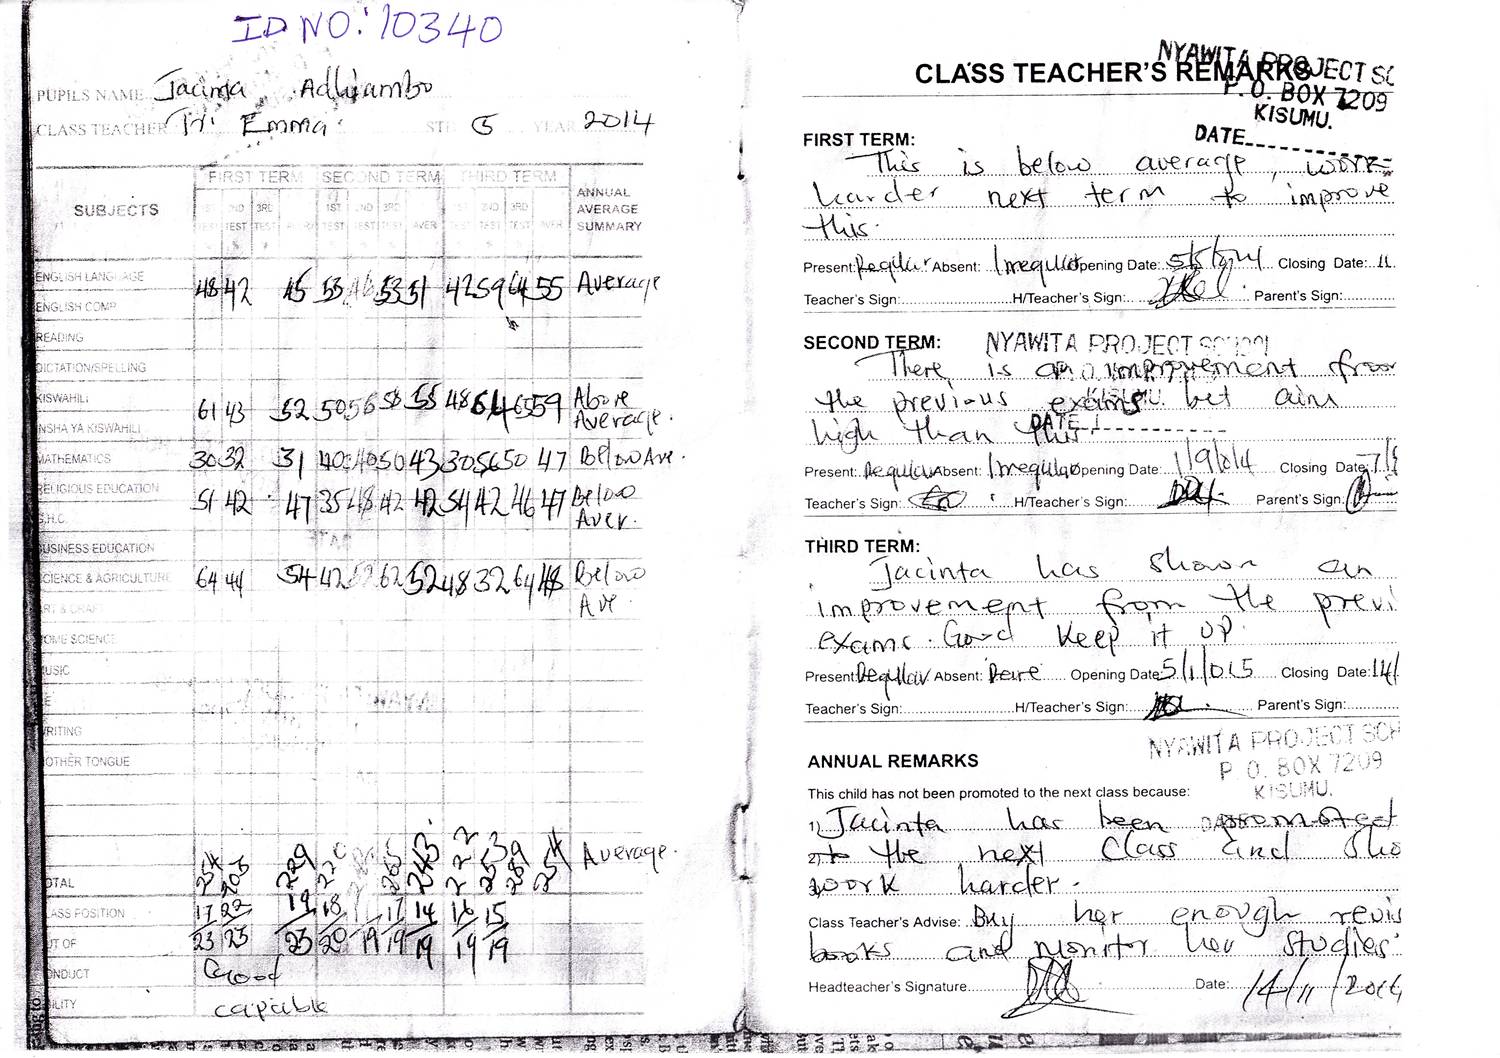 ID NO: 10340
PUPILS NAME Jacinta Adhiambo
CLASS TEACHER Tr. Emma STD 5 YEAR 2014
SUBJECTS FIRST TERM SECOND TERM THIRD TERM ANNUAL AVERAGE SUMMARY
ENGLISH LANGUAGE 48 42 45 53 46 53 51 42 59 64 55 Average
ENGLISH COMP
READING
DICTATION/SPELLING
KISWAHILI 61 43 52 50 56 58 55 48 64 65 59 Above Average.
INSHA YA KISWAHILI
MATHEMATICS 30 32 31 40 40 50 43 30 56 50 47 Below Ave.
RELIGIOUS EDUCATION 51 42 47 35 48 42 42 54 42 46 47 Below Aver.
BUSINESS EDUCATION
SCIENCE & AGRICULTURE 64 44 54 42 62 52 48 32 64 48 Below Ave.
ART & CRAFT
HOME SCIENCE
MUSIC
WRITING
MOTHER TONGUE
TOTAL 254 203 229 220 265 243 222 253 289 254 Average.
CLASS POSITION 17 22 19 18 17 14 16 15
OUT OF 23 23 23 20 19 19 19 19 19
CONDUCT Good
capable
CLASS TEACHER'S REMARKS
NYAWITA PROJECT SC
P.O. BOX 7209
KISUMU.
DATE
FIRST TERM:
This is below average, work
harder next term to improve
this.
Present: Regular Absent: Irregular Opening Date: 5/5/2014 Closing Date: 11
Teacher's Sign: H/Teacher's Sign: Parent's Sign:
SECOND TERM: NYAWITA PROJECT SCHOOL
There is an improvement from
the previous exams but aim
KISUMU.
DATE
high than this.
Present: Regular Absent: Irregular Opening Date: 1/9/014 Closing Date: 7/
Teacher's Sign: H/Teacher's Sign: Parent's Sign:
THIRD TERM:
Jacinta has shown an
improvement from the previ
exams. Good keep it up.
Present: Regular Absent: Rare Opening Date: 5/1/015 Closing Date: 14/
Teacher's Sign: H/Teacher's Sign: Parent's Sign:
NYAWITA PROJECT SCH
P O. BOX 7209
KISUMU.
ANNUAL REMARKS
This child has not been promoted to the next class because:
1) Jacinta has been promoted
2) to the next class and sho
3) work harder.
Class Teacher's Advise: Buy her enough revis
books and monitor her studies.
Headteacher's Signature Date: 14/11/2014